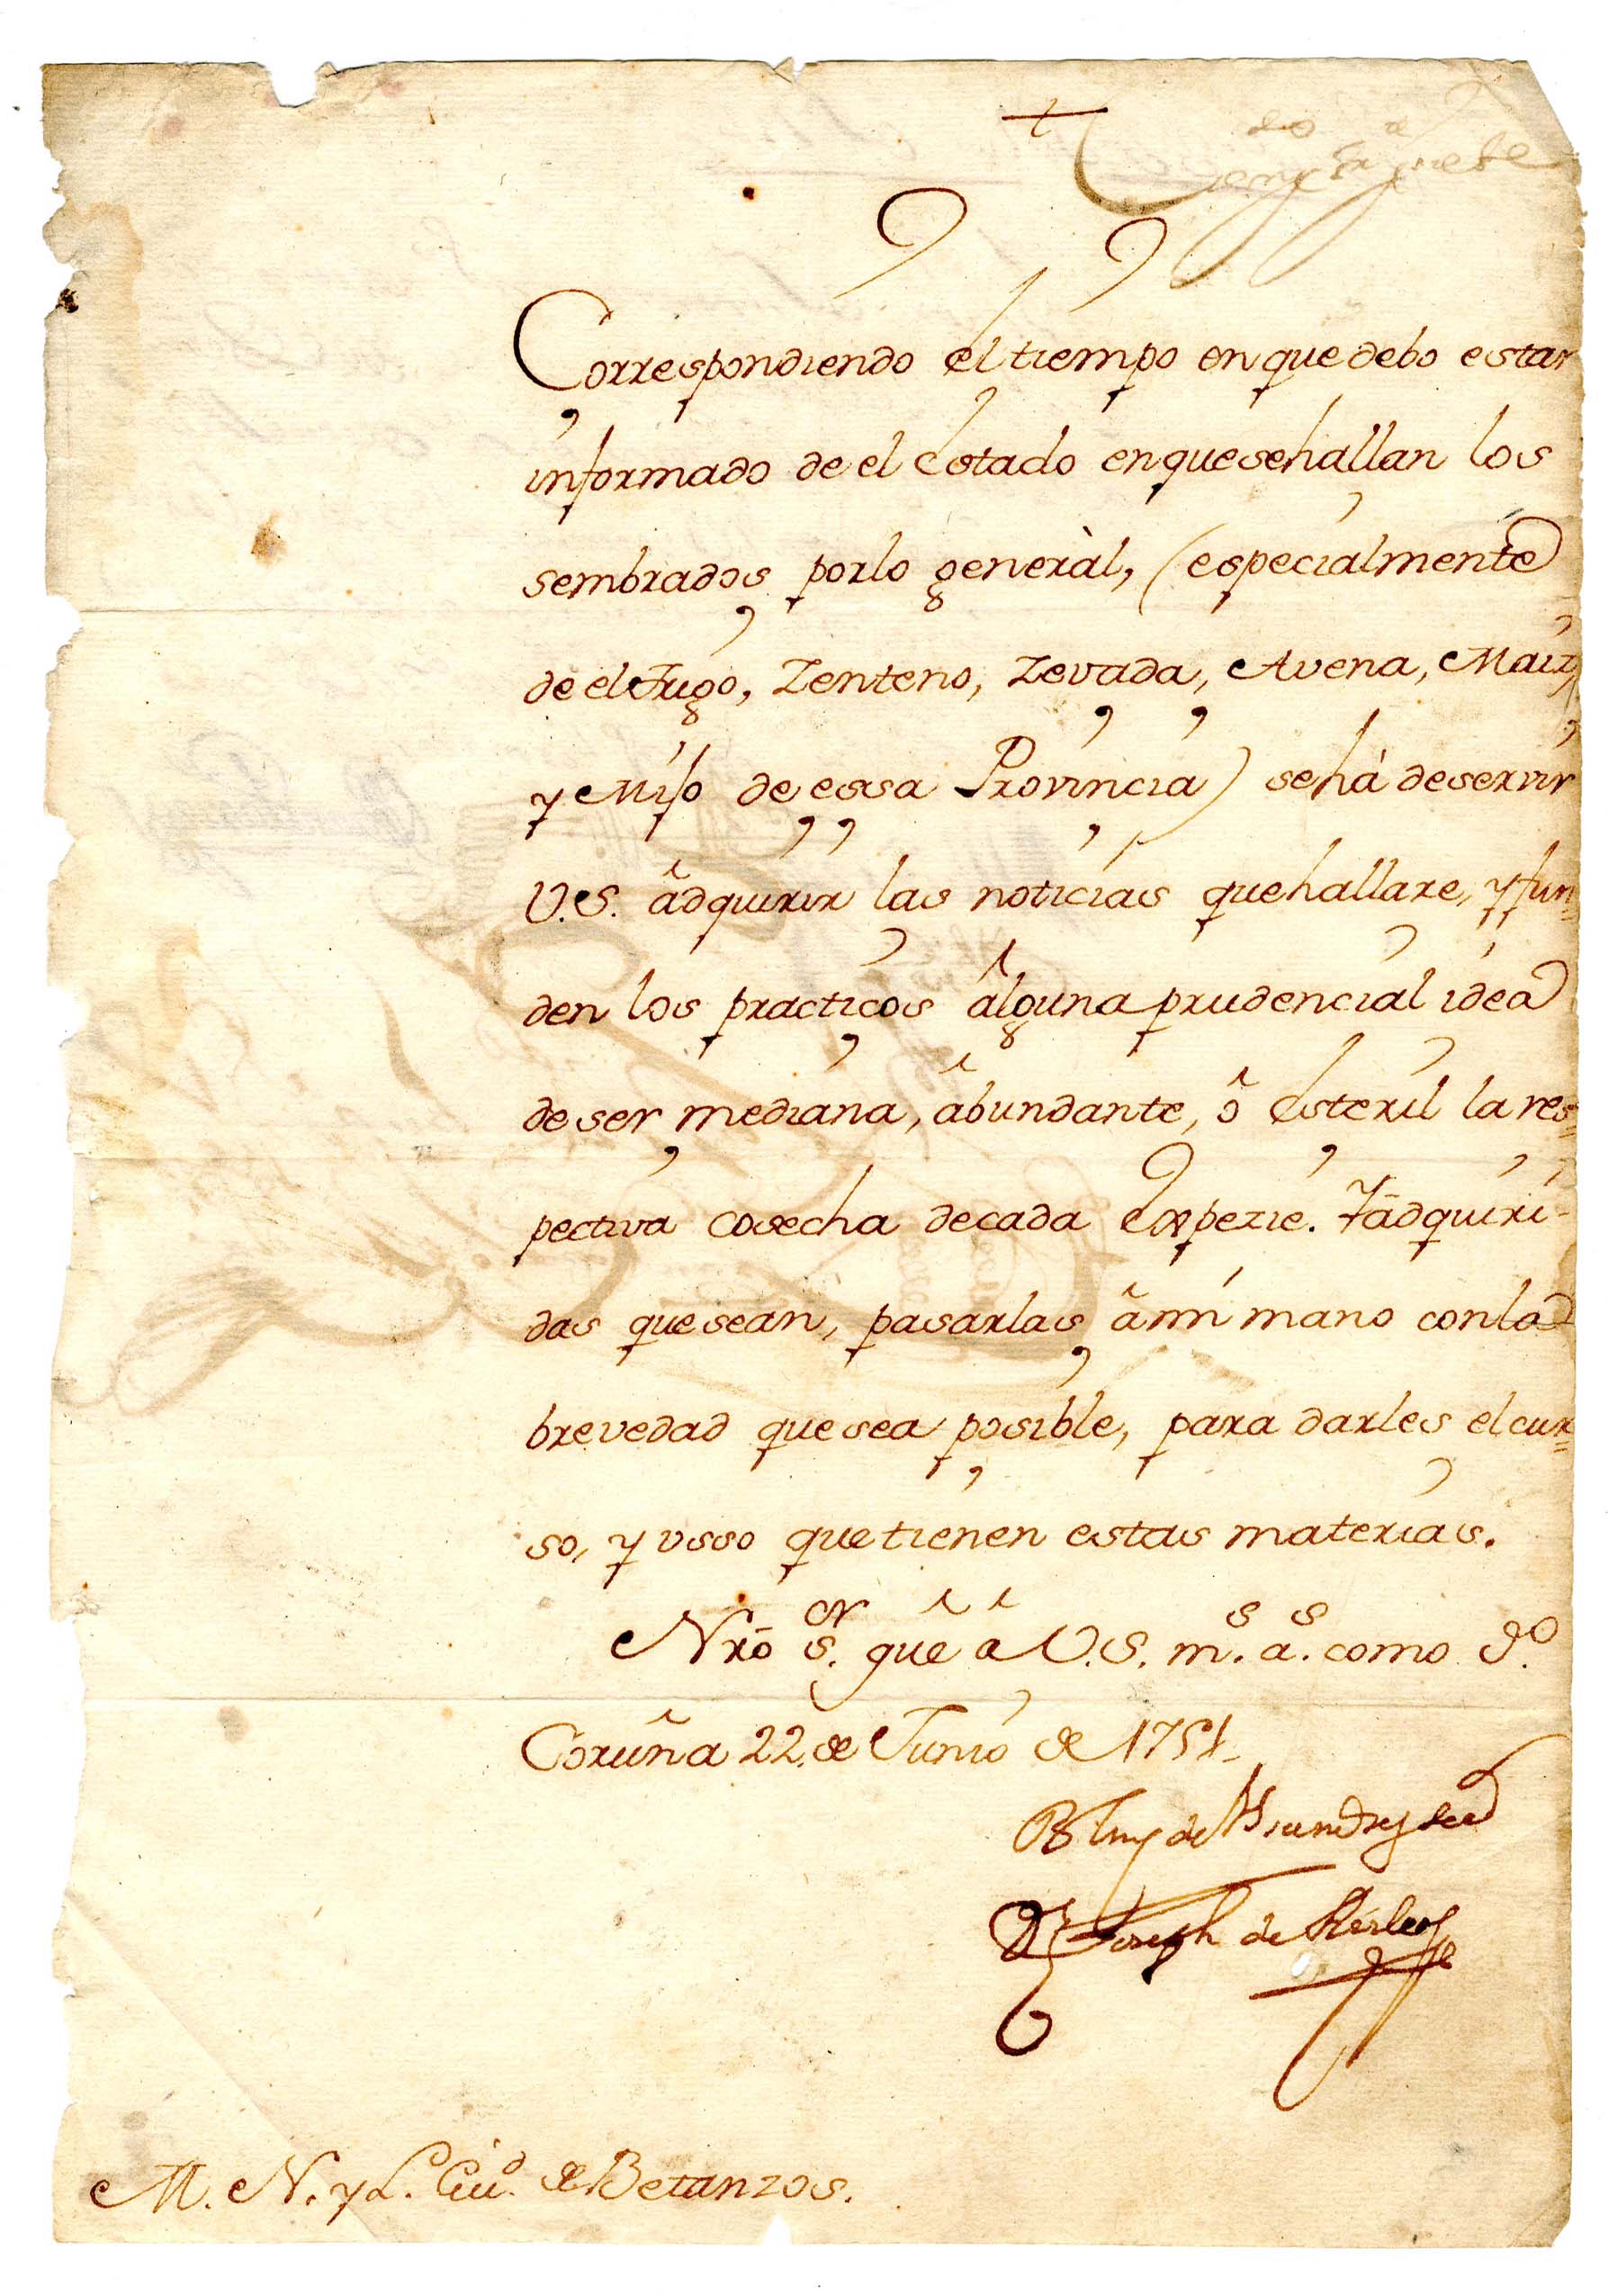 Correspondiendo el tiempo en que debo estar
informado de el Estado en que se hallan los
sembrados por lo general, (especialmente
de el Trigo, Zenteno, Zevada, Avena, Maiz,
y Mijo de essa Provincia) se há de servir
V.S. âdquirir las noticias que hallare, y fun=
den los practicos âlguna prudencial idea
de ser mediana, âbundante, ô Esteril la res=
pectiva cosecha de cada Espezie. Y âdquiri-
das que sean, pasarlas â mi mano con la
brevedad que sea posible, para darles el cur=
so, y vsso que tienen estas materias.
Nrō s.or gūe â V.S. m.s a.s como d.o
Coruña 22 de Junio de 1751
Dn Joseph de Avilés
M. N. y L. Ciu.d de Betanzos.